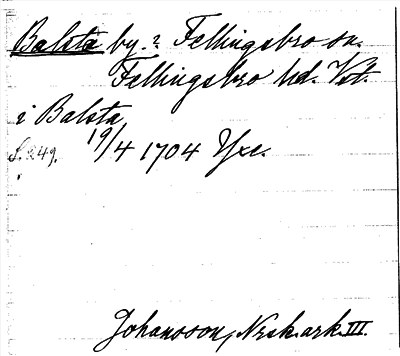 Balsta by. i Fellingsbro sn.
Fellingsbro hd. Vst.
i Balsta
s. 249. 19/4 1704 Yxe.
Johansson, Norsk. ark. III.